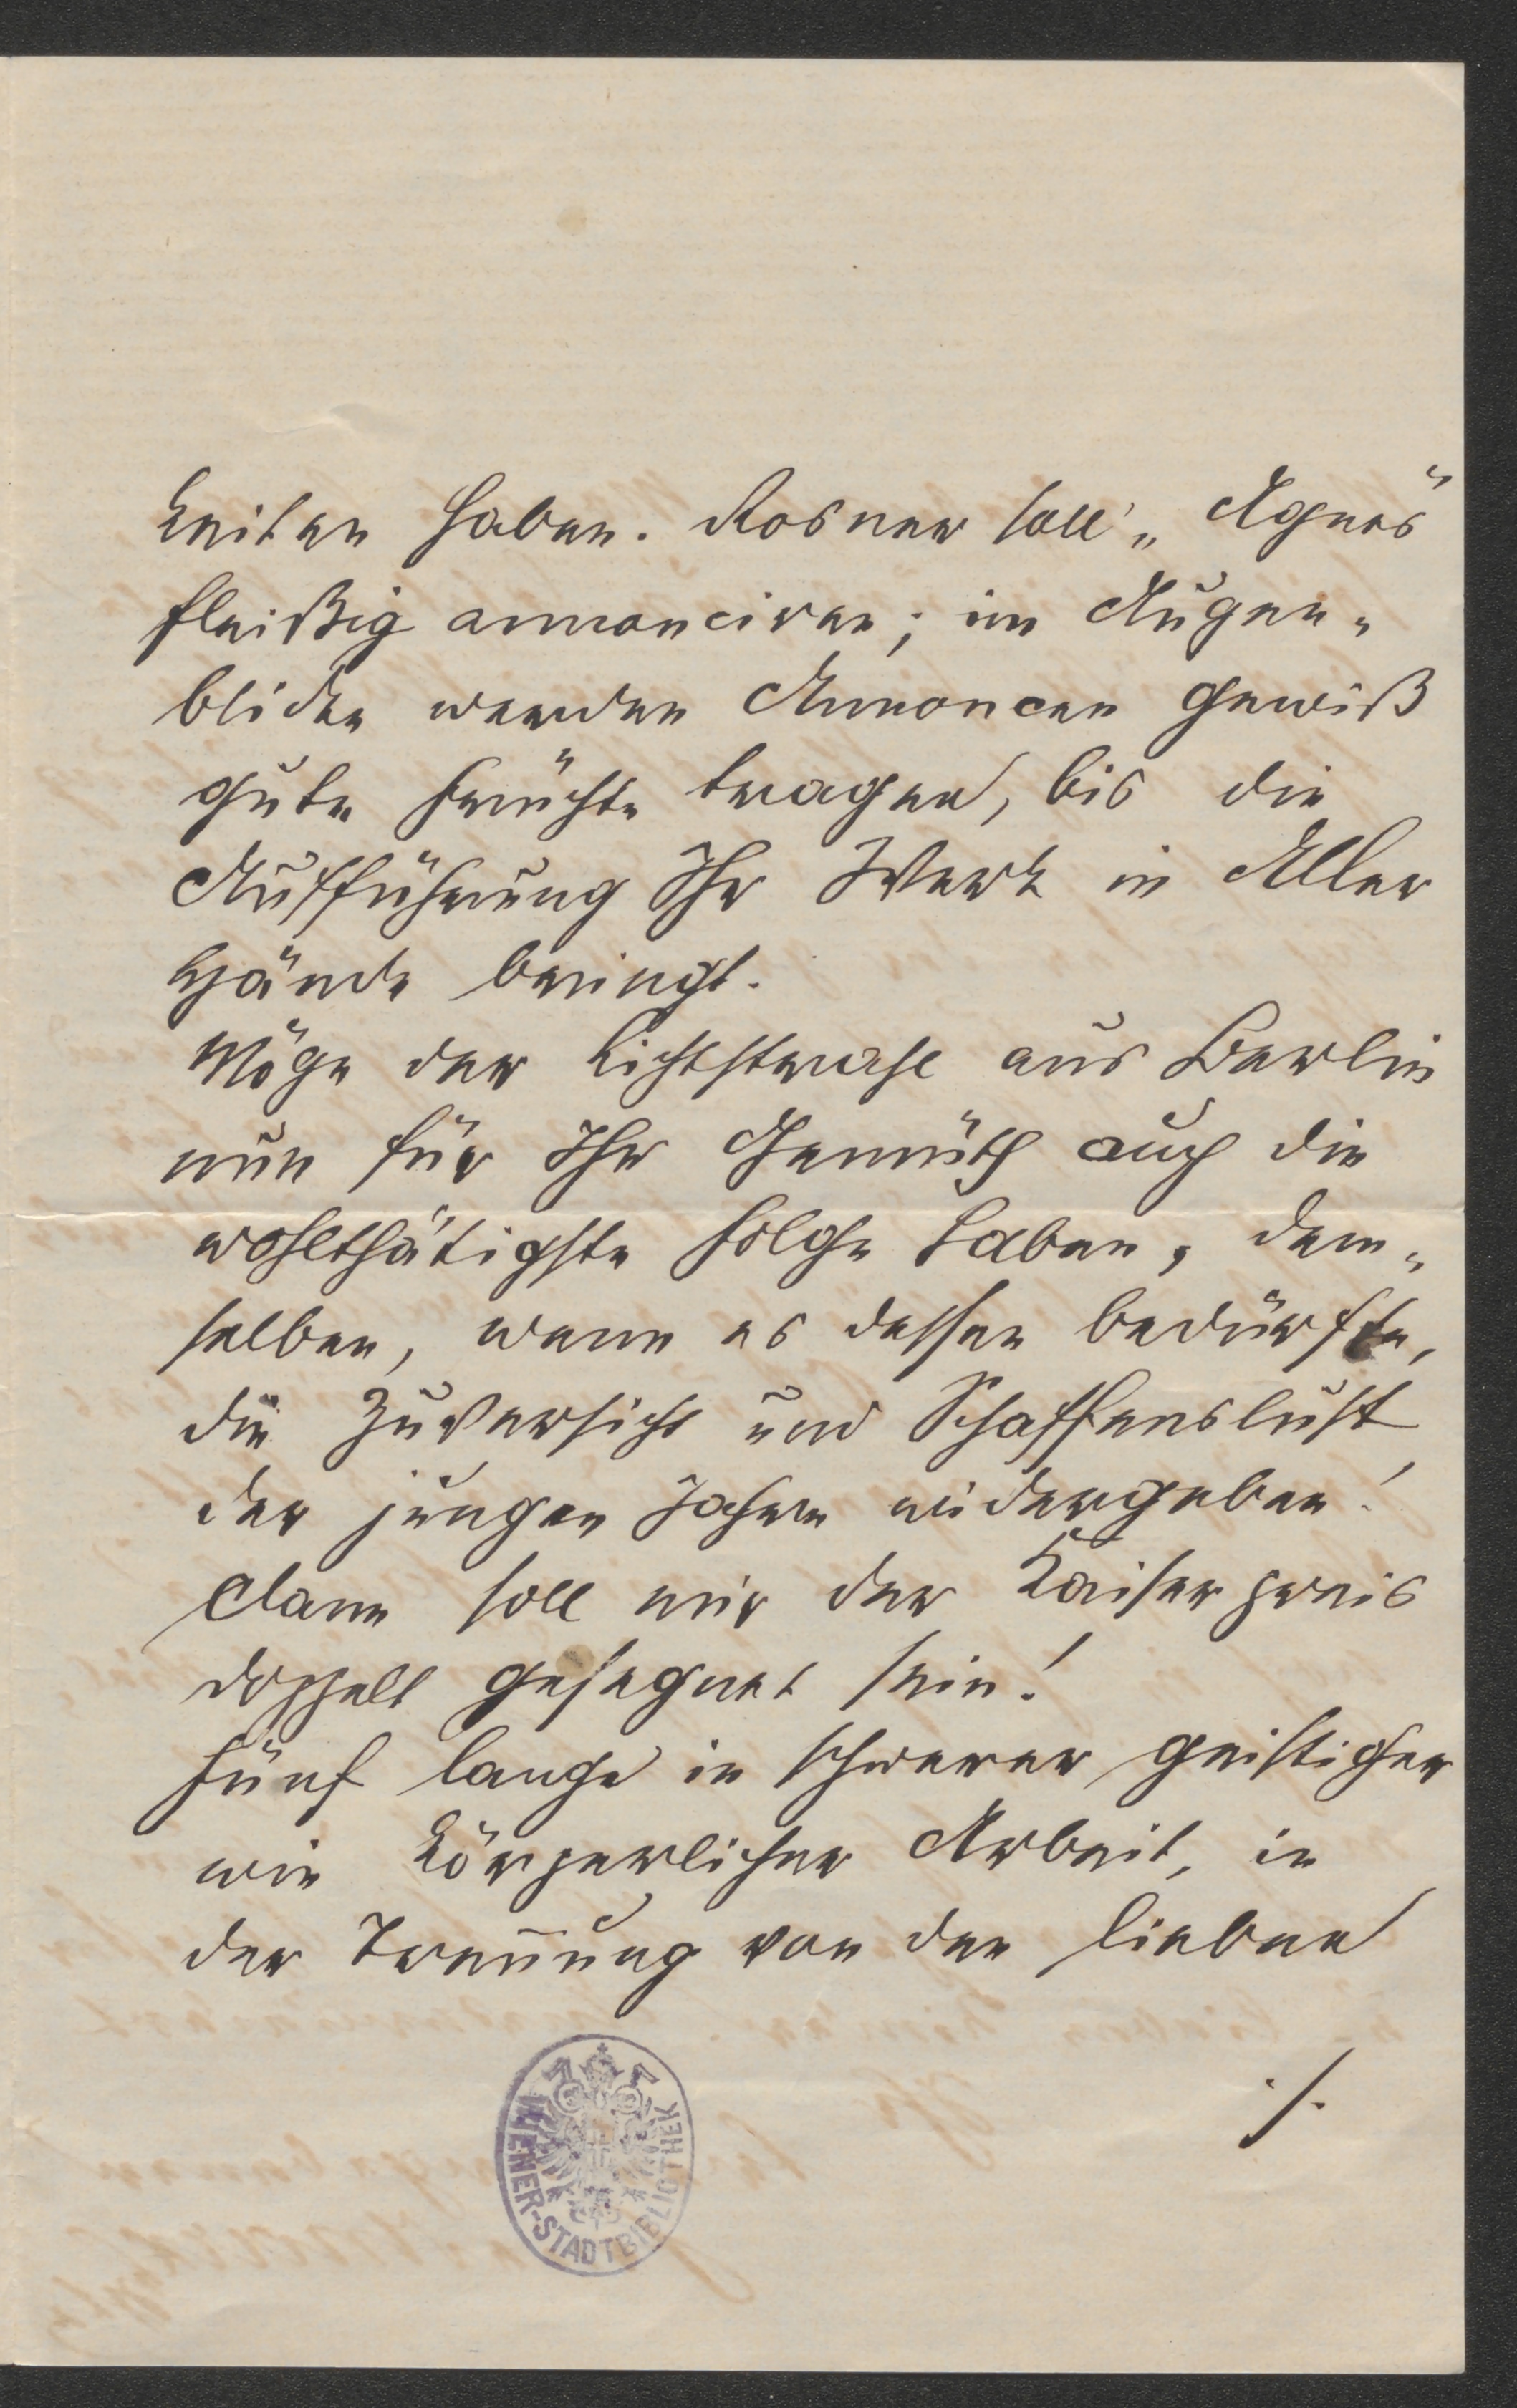 keiten haben. Rosner soll „Agnes"
fleißig annonciren; im Augen-
blicke werden Annoncen gewiß
gute Früchte tragen, bis die
Aufführung Ihr Werk in Aller
Hände bringt.
Möge der Lichtstrahl aus Berlin
nun für Ihr Gemüth auch die
wohlthätigste Folge haben, dem-
selben, wenn es dessen bedürfte,
die Zuversicht und Schaffenslust
der jungen Jahre widergeben!
Dann soll mir der Kaiserpreis
doppelt gesegnet sein!
Fünf lange in schwerer geistiger
wie körperlicher Arbeit, in
der Trennung von den lieben
./.
WIENER-STADTBIBLIOTHEK